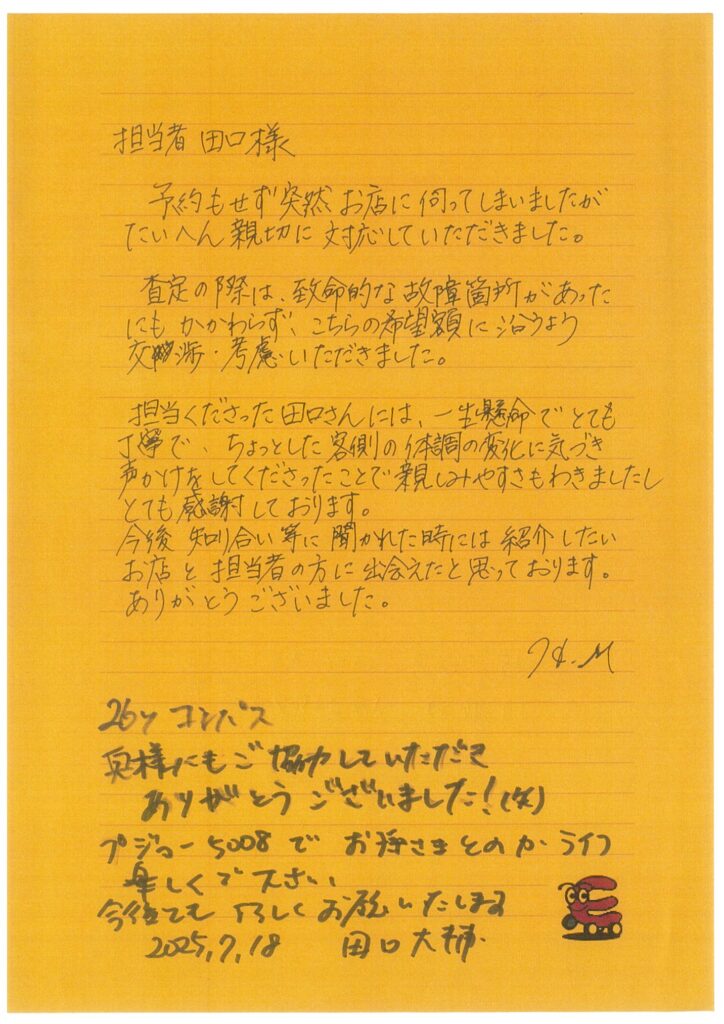 担当者 田口様
予約もせず突然お店に伺ってしまいましたが
たいへん親切に対応していただきました。
査定の際は、致命的な故障箇所があった
にもかかわらず、こちらの希望額に沿うよう
交渉・考慮いただきました。
担当くださった田口さんには、一生懸命でとても
丁寧で、ちょっとした客側の体調の変化に気づき
声かけをしてくださったことで親しみやすさもわきましたし
とても感謝しております。
今後知り合い等に聞かれた時には紹介したい
お店と担当者の方に出会えたと思っております。
ありがとうございました。
コンパス
奥様にもご協力していただき
ありがとうございました!(笑)
プジョー5008でお孫さまとの ライフ
楽しく下さい
今後とも宜しくお願いいたします
2025,7,18 田口大輔